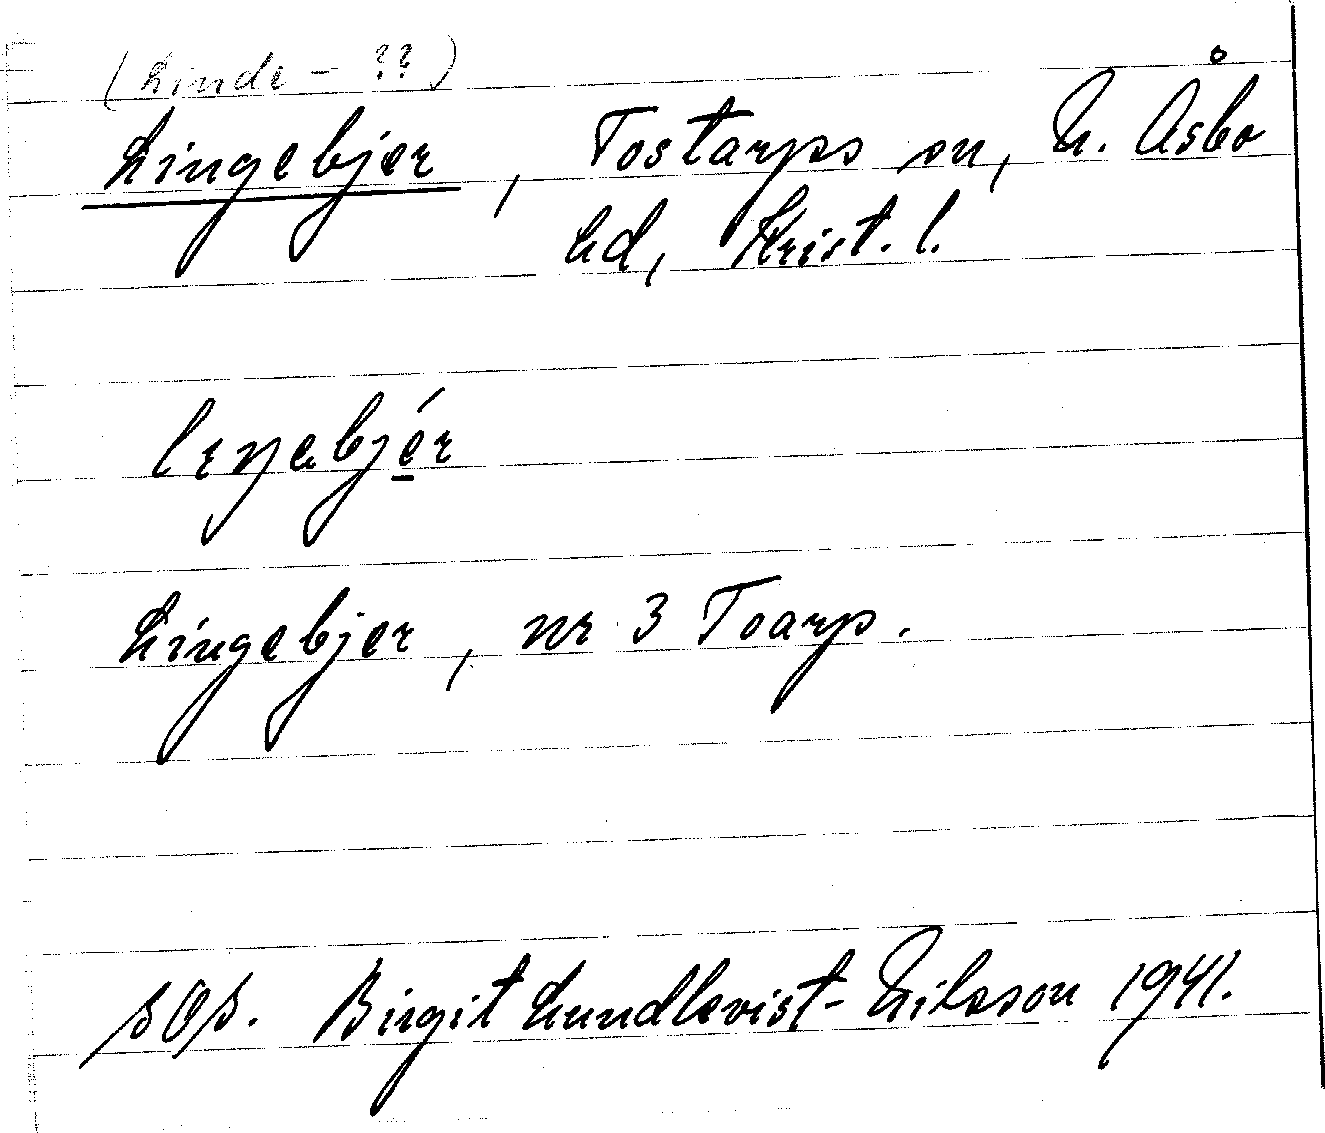 (Linde - ??)
Lingebjer, Tostarps sn, N. Åsbo
hd, Krist. l.
Lingebjer, nr 3 Toarp.
Birgit Lundkvist-Nilsson 1941.